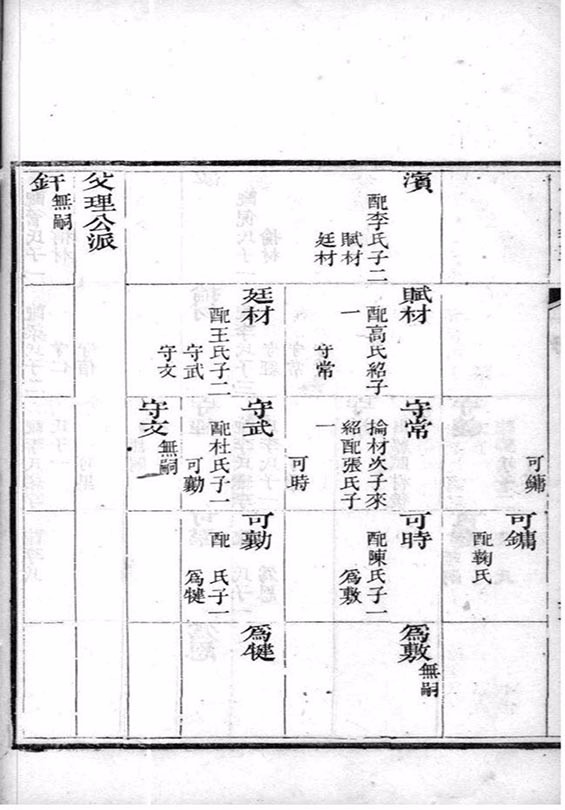 可鏞
可鏞
配鞠氏
濱
配李氏子二
賦材
廷材
賦材
配高氏紹子
一
守常
守常
掄材次子來
紹配張氏子
一
可時
可時
配陳氏子一
爲敷
爲敷
無嗣
廷材
配王氏子二
守武
守文
守武
配杜氏子一
可勷
可勷
配 氏子一
爲犍
爲犍
守文
無嗣
文理公派
釬
無嗣